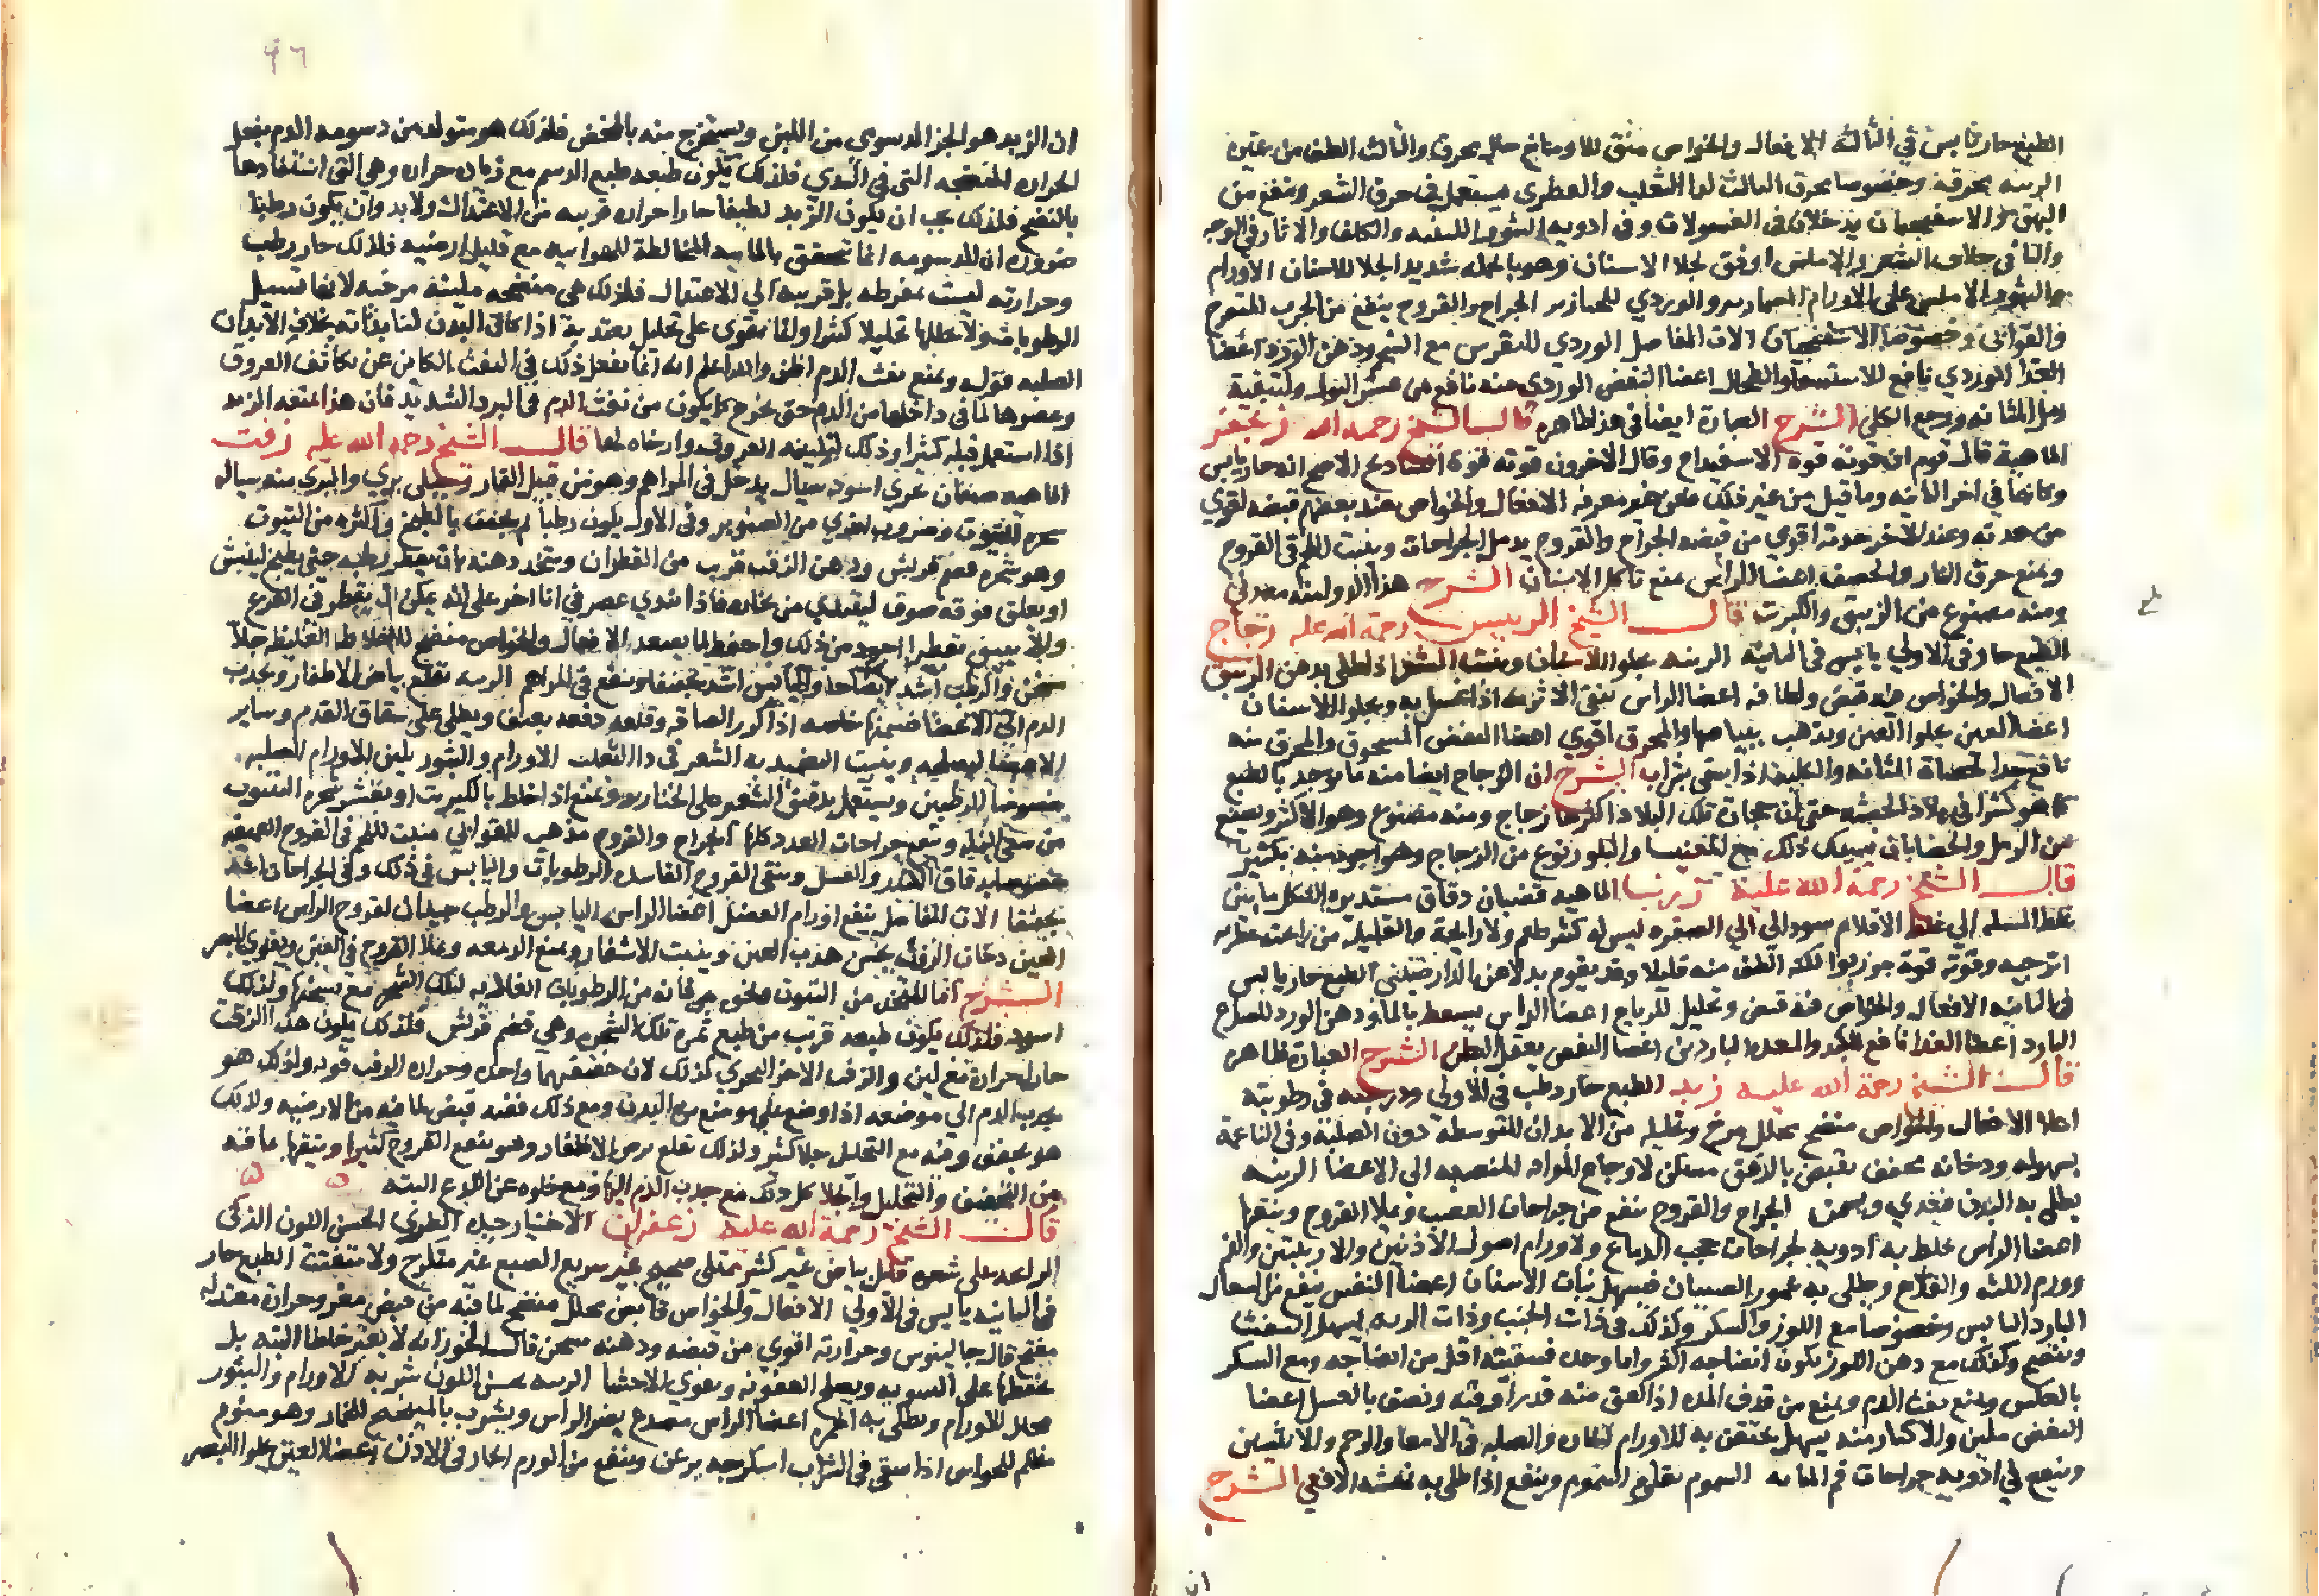 الطبع حار يابس في الثالثة الافعال والخواص منق للاوساخ جلا محرق والثالث الطف من غيره
الزينه محرقه وخصوصا محرق الثالث لداء الثعلب والعطرى يستعمل في حرق الشعر وينفع من
البهق والاسفنجيان يدخلان في الغسولات وفي ادويه البثور اللبنيه والكلف والاثار في الوجه
والثاني جلاب الشعر والاملس اوفق لجلا الاسنان وهو بالجمله شديد الجلا للاسنان الاورام
والبثور الاملس على الاورام والوردي للخنازير الجراح والقروح ينفع من الجرب المتقرح
والقوابي وخصوصا الاسفنجيان الات المفاصل الوردي للنقرس مع الشمع ودهن الورد اعضا
الغذا الوردي نافع للاستسقا والطحال اعضا النفض الوردي منه نافع من عسر البول ولتنقية
رمل المثانه ووجع الكلى الشرح العبارة ايضا في هذا ظاهره قال الشيخ رحمه الله زنجفر
الماهية قال قوم ان قوته قوة الاسفيداج وقال الاخرون قوته قوة الشادنج الاصح انه حار يابس
وكانهما في اخر الثانيه وما قيل من غير ذلك فعن غير معرفه الافعال والخواص عند بعضهم قبضه اقوي
من حدته وعند الاخر حدته اقوي من قبضه الجراح والقروح يدمل الجراحات وينبت اللحم في القروح
ويمنع حرق النار والحصف اعضا الراس يمنع تاكل الاسنان الشرح هذا الدوا منه معدني
ومنه مصنوع من الزيبق والكبريت قال الشيخ الرييس رحمة الله عليه زجاج
الطبع حار في الاولي يابس في الثانية الزينه يجلو الاسنان وينبت الشعر اذا طلي بدهن الزيبق
الافعال والخواص فيه قبض ولطافه اعضا الراس ينقي الابرية اذا غسل به ويجلوا الاسنان
اعضا العين يجلوا العين ويذهب بياضها والمحرق اقوي اعضا النفض المسحوق والمحرق منه
نافع جدا لحصاة المثانه والكلية اذا سقي بشراب الشرح ان الزجاج ايضا منه ما يوجد بالطبع
كما هو كثيرا في بلاد الحبشه حتى ان حجارة تلك البلاد اكثرها زجاج ومنه مصنوع وهو الاكثر ويصنع
من الرمل والحصا بان يسبك ذلك مع المغنيسا والبلور نوع من الزجاج وهو اجود منه بكثير
قال الشيخ رحمة الله عليه زرنب الماهيه قضبان دقاق مستديره الشكل ما بين
غلظ المسله الي غلظ الاقلام سود الي الصفره ليس له كثير طعم ولا رايحة والقليله من رايحته عطريه
اترجيه وقوته قوة جوزبوا لكنه الطف منه قليلا وقد يقوم بدلا عن الدارصيني الطبع حار يابس
في الثانيه الافعال والخواص فيه قبض وتحليل للرياح اعضا الراس يسعط بالما ودهن الورد للصداع
البارد اعضا الغذا نافع للكبد والمعده الباردين اعضا النفض يعقل البطن الشرح العبارة ظاهره
قال الشيخ رحمة الله عليه زبد الطبع حار رطب في الاولي ودرجته في رطوبته
اعلا الافعال والخواص منضج محلل مرخ وتحليله من الابدان المتوسطه دون الصلبة وفي الناعمة
بسهوله ودخانه مجفف يقبض بالرفق مسكن لاوجاع المواد المنصبه الي الاعضا الزينه
يطلى به البدن فيغذي ويسمن الجراح والقروح ينفع من جراحات العصب ويملا القروح وينقيها
اعضا الراس يخلط به ادوية لجراحات حجب الدماغ ولاورام اصول الاذنين والاربيتين والفم
وورم اللثه والقلاع ويطلى به عمور الصبيان فيسهل نبات الاسنان اعضا النفس ينفع من السعال
البارد اليابس وخصوصا مع اللوز والسكر وكذلك في ذات الجنب وذات الريه يسهل النفث
وينضج وكذلك مع دهن اللوز يكون انضاجه اكثر واما وحده فتنقيته اقل من انضاجه ومع السكر
بالعكس ويمنع نفث الدم ويمنع من قذف المده اذا لعق منه قدر اوقيه ونصف بالعسل اعضا
النفض ملين والاكثار منه يسهل يحتقن به للاورام الحاره والصلبه في الامعا والرحم والانثيين
وينفع في ادوية جراحات فم المثانه السموم يقاوم السموم وينفع اذا طلى به نهشة الافعي الشرح
ان
٩٦
ان الزبد هو الجز الدسوي من اللبن ويستخرج منه بالمخض فلذلك هو متولد من دسومة الدم بفعل
الحراره المنضجه التي في الثدي فلذلك يكون طبعه طبع الدسم مع زياده حراره وهي التي استفادها
بالنضج فلذلك يجب ان يكون الزبد لطيفا حارا حراره قريبه من الاعتدال ولابد وان يكون رطبا
ضروره ان الدسومه انما تتحقق بالماييه المخالطة للهواييه مع قليل ارضيه فلذلك حار رطب
وحرارته ليست بمفرطه بل قريبه الي الاعتدال فلذلك هي منضجه ملينه مرخيه لانها تسيل
الرطوبات ولا تحللها تحليلا كثيرا وانما يقوي على تحليل يعتد به اذا كان البدن لينا بذاته بخلاف الابدان
الصلبه قوله ويمنع نفث الدم اظن والله اعلم انه انما يفعل ذلك في النفث الكاين عن تكاثف العروق
وعصرها لما في داخلها من الدم حتى يخرج كما يكون من نفث الدم في البرد الشديد فان هذا يمنعه الزبد
اذا استعمل قبله كثيرا وذلك لتليينه العروق وارخاه لها قال الشيخ رحمه الله عليه زفت
الماهيه صنفان بحري اسود سيال يدخل في المراهم وهو من قبيل القار وجبلي بري والبري منه سيال
شجره التنوب وضروب اخري من الصنوبر وفي الاول يكون رطبا ثم يجفف بالطبخ واكثره من التنوب
وهو شجره قضم قريش ودهن الزفت قريب من القطران ويتخذ دهنه بان يقطر رطبه حتى يطبخ لينش
او يعلق فوقه صوف ليقبل من بخاره فاذا ندي عصر في انا اخر على انه يمكن ان يقطر في القرع
والانبيق تقطيرا اجود من ذلك واحفظ لما يصعد الافعال والخواص منضج للاخلاط الغليظه جلا
مسخن والرطب اشد اسخانا واليابس اشد تجفيفا وينفع في المراهم الزينه يقلع بياض الاظفار ويجذب
الدم الى الاعضا فيسمنها خاصه اذا كرر الصاقه وقلعه دفعه بعنف ويطلى على شقاق القدم وساير
الاعضا ليصلحه وينبت الضميد به الشعر في دا الثعلب الاورام والبثور يلين الاورام الصلبه
خصوصا الرطبين ويستعمل بدقيق الشعير على الخنازير ويمنع اذا خلط بالكبريت او بقشر شجره التنوب
من سعي النمله وينفع جراحات الغدد كلها الجراح والقروح مذهب للقوابي منبت للحم في القروح العميقه
خصوصا بدقاق الكندر والعسل وينقي القروح الفاسده الرطوبات واليابس في ذلك وفي الجراحات اشد
تجفيفا الات المفاصل ينفع اورام العضل اعضا الراس اليابس والرطب جيدان لقروح الراس اعضا
العين دخان الزفت يحسن هدب العين وينبت الاشفار ويمنع الدمعه ويملا القروح في العين ويقوي البصر
الشرح اما المتخذ من التنوب فانه من الرطوبات الغالبه لتلك الشجره مع تسخنها ولذلك
اسود فلذلك يكون طبعه قريب من طبع ثمره تلك الشجره وهي قضم قريش فلذلك يكون هذا الزفت
حارا حرارة مع لين والزفت الاخر البحري كذلك لان حقيقتهما واحده وحراره الزفت قويه ولذلك هو
يجذب الدم الى موضعه اذا وضع علي موضع من البدن ومع ذلك ففيه قبض لما فيه من الارضيه ولذلك
هو مجفف وفيه مع التحليل جلا كثير ولذلك يقلع برص الاظفار وهو ينفع القروح كثيرا وينقيها بما فيه
من التجفيف والتحليل والجلا كل ذلك مع جذب الدم اليها ومع خلوه عن اللذع البته
قال الشيخ رحمة الله عليه زعفران الاختيار جيده الطري الحسن اللون الذكى
الرايحه على شعره قليل بياض غير كثير ممتلي صحيح غير سريع الصبغ غير متلزج ولا متفتت الطبع حار
في الثانيه يابس في الاولي الافعال والخواص قابض محلل منضج لما فيه من قبض مغر وحرارة معتدله
مفتح قال جالينوس وحرارته اقوي من قبضه ودهنه مسخن قال الخوز انه لا يغير خلطا البته بل
يحفظها على السويه ويصلح العفونه ويقوي الاحشا الزينه يحسن اللون شربه الاورام والبثور
محلل للاورام ويطلى به الحمره اعضا الراس مصدع يضر الراس ويشرب بالميبختج للخمار وهو منوم
مظلم للحواس اذا سقي في الشراب اسكر حتى يرعن وينفع من الورم الحار في الاذن اعضا العين يجلوا البصر